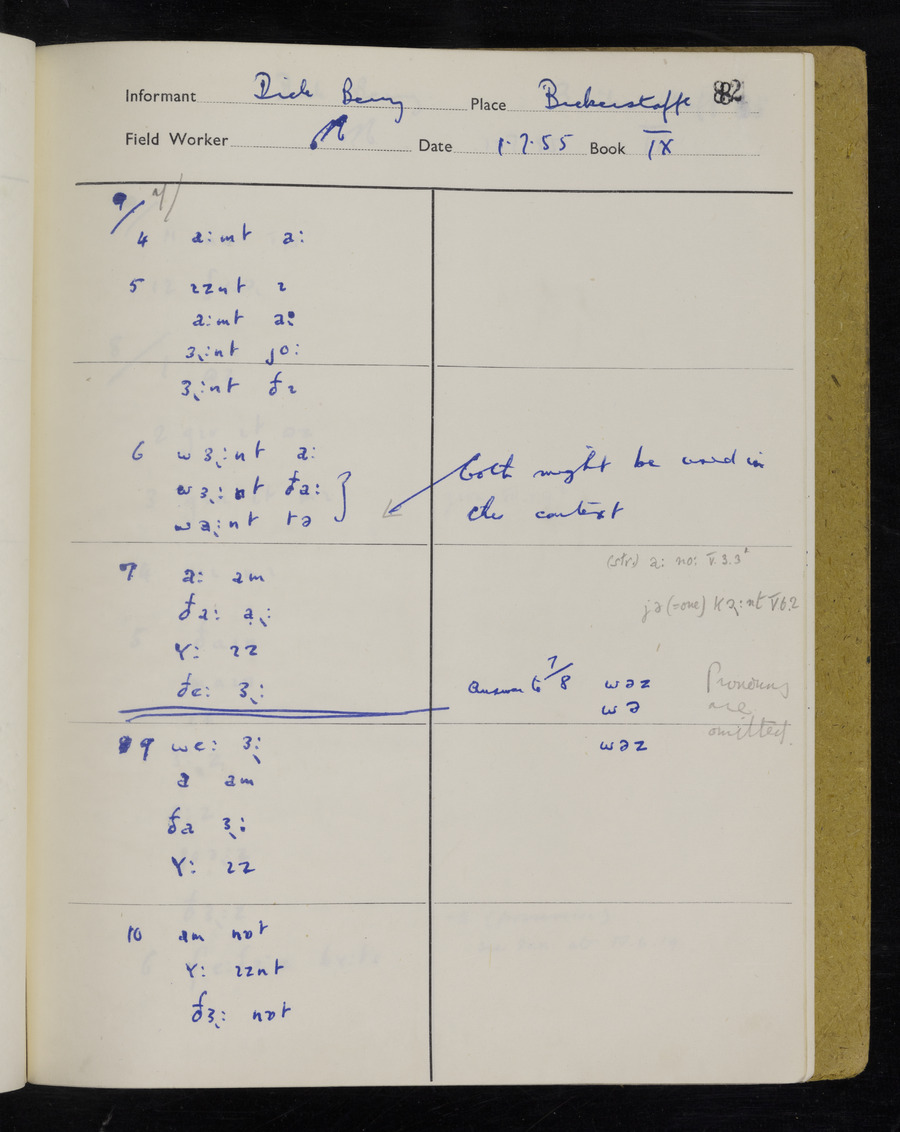 Informant Dick Berry Place Bickerstaffe 82
Field Worker Date 1.7.55 Book IX
9/
4 a:mt a:
5 ɪznt ɪ
a:mt a:
ɜ˞:nt jo:
ɜ˞:nt ðɪ
6 wɜ˞:nt a:
wɜ˞:nt ða:
wa˞:nt tə
both might be used in
the context
7 a: am
ða: a˞:
ɣ: ɪz
ðɛ: ɜ˞:
(str) a: no: V.3.3
jə (=one) ka˞:nt V6.2
answer to 7/8 wəz
wə
wəz
Pronouns
are
omitted
9 wɛ: ɜ˞:
a am
ða ɜ˞:
ɣ: ɪz
10 am nɒt
ɣ: ɪznt
ðɜ˞: nɒt